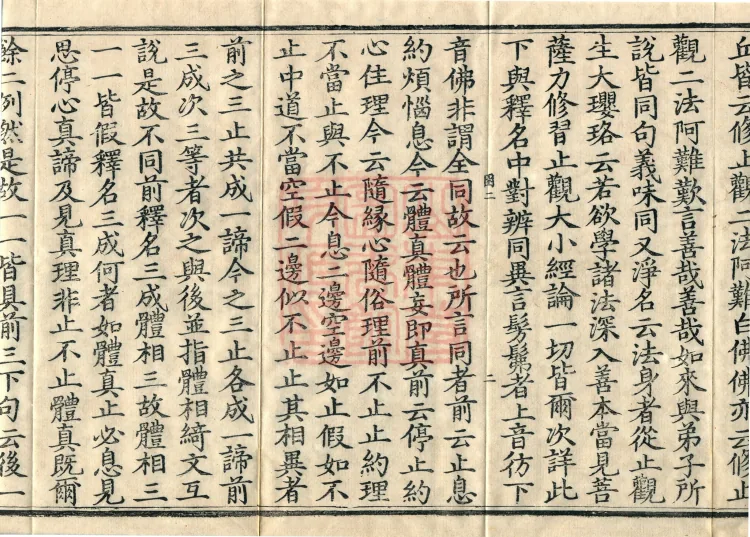 丘皆云修止觀二法阿難白佛佛亦云修止
觀二法阿難歎言善哉善哉如來與弟子所
說皆同句義味同又淨名云法身者從止觀
生大瓔珞云若欲學諸法深入善本當見菩
薩力修習止觀大小經論一切皆爾次詳此
下與釋名中對辨同異言髣髴者上音彷下
音佛非謂全同故云也所言同者前云止息
約煩惱息今云體真體妄即真前云停止約
心住理今云隨緣心隨俗理前不止止約理
不當止與不止今息二邊空邊如止假如不
止中道不當空假二邊似不止止其相異者
前之三止共成一諦今之三止各成一諦前
三成次三等者次之與後並指體相綺文互
說是故不同前釋名三成體相三故體相三
一一皆假釋名三成何者如體真止必息見
思停心真諦及見真理非止不止體真既爾
餘二例然是故一一皆具前三下句云後一